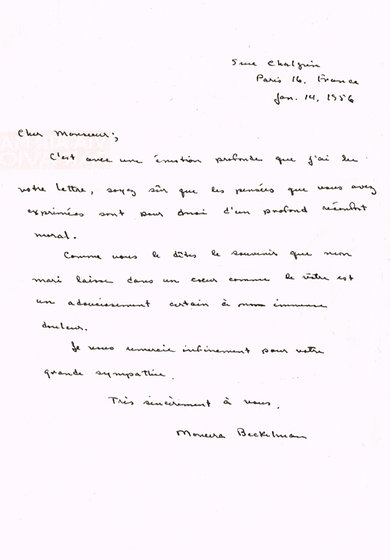 5 rue Chalgrin
Paris 16. France
Jan. 14, 1956
Cher Monsieur;
C'est avec une émotion profonde que j'ai lu
votre lettre, soyez sûr que les pensées que vous avez
exprimées sont pour moi d'un profond réconfort
moral.
Comme vous le dîtes le souvenir que mon
mari laisse dans un coeur comme le vôtre est
un adoucissement certain à mon immense
douleur.
Je vous remercie infiniment pour votre
grande sympathie.
Très sincèrement à vous,
Moneera Beckelman